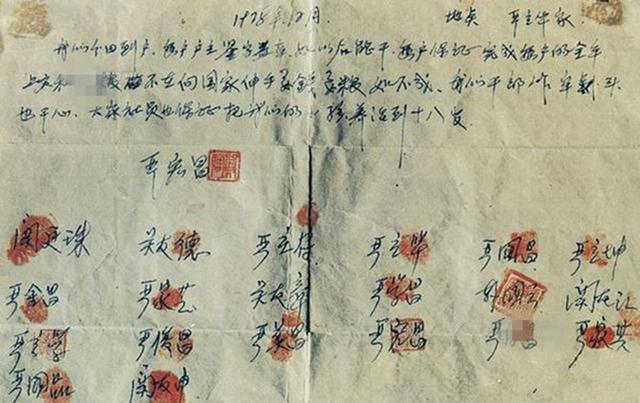 1978年12月 地点 严立华家
我们分田到户，每户户主签字盖章，如以后能干，每户保证完成每户的全年
上交和 不在向国家伸手要钱要粮，如不成，我们干部作牢刹头
也干心，大家社员也保证把我们的小孩养活到十八岁。
严宏昌
关廷珠 关友德 严立符 严立华 严国昌 严立坤
严金昌 严家芝 关友章 严学昌 韩国云 关友江
严立学 严俊昌 严美昌 严宏昌 严 昌 严家其
严国品 关友申